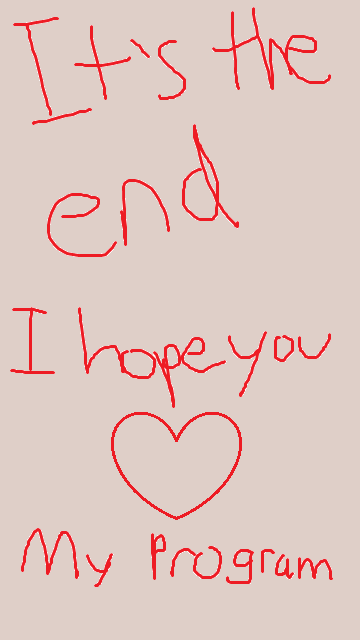 It's the
end
I hope you
My Program